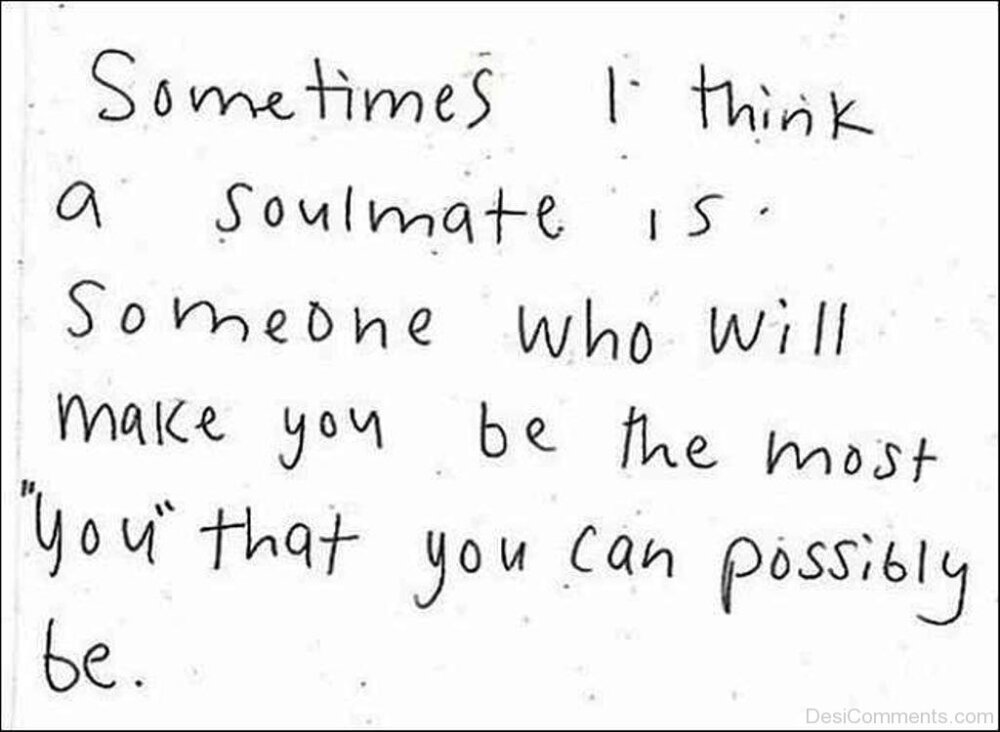 Sometimes I think
a soulmate is
someone who will
make you be the most
"you" that you can possibly
be.
DesiComments.com